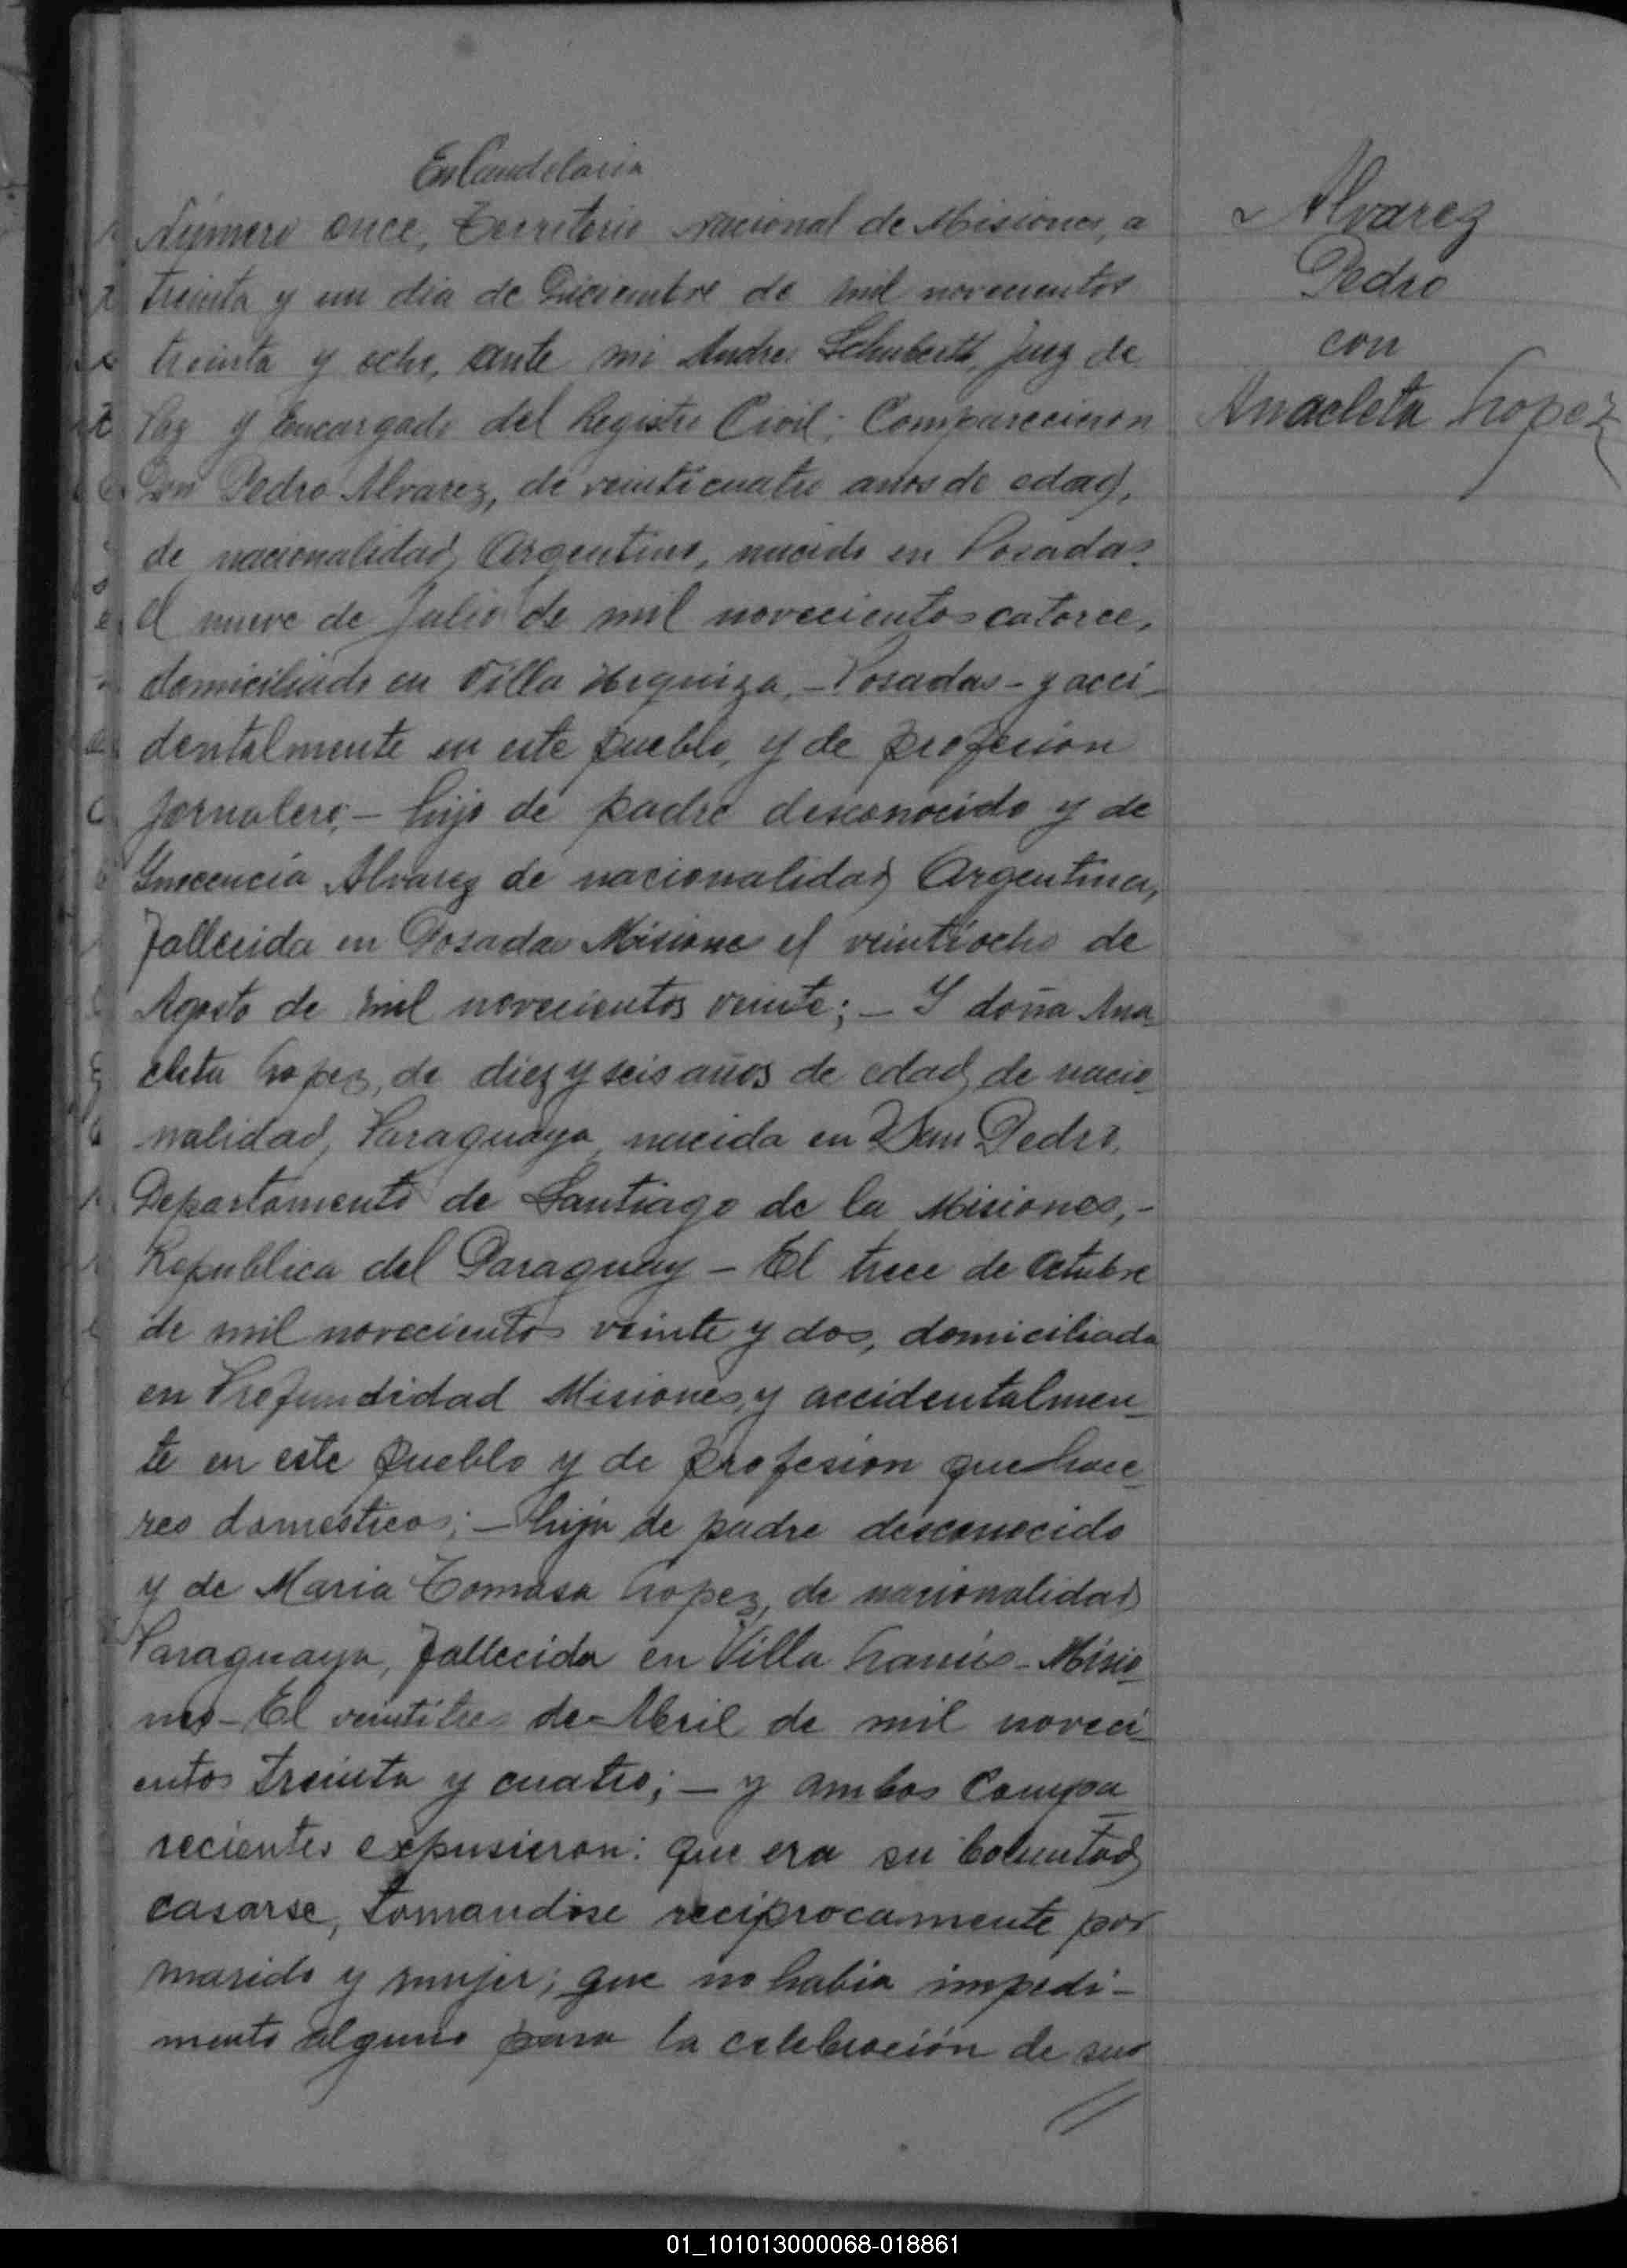 En Candelaria
Número once, Territorio Nacional de Misiones, a
treinta y un dia de Diciembre de mil novecientos
treinta y ocho, ante mi Andres Schuberth, Juez de
Paz y Encargado del Registro Civil; Comparecieron
Don Pedro Alvarez, de veinticuatro años de edad,
de nacionalidad Argentino, nacido en Posadas
el nueve de Julio de mil novecientos catorce,
domiciliado en Villa Urquiza, - Posadas - y acci-
dentalmente en este pueblo, y de profesion
Jornalero; - hijo de padre desconocido y de
Inocencia Alvarez de nacionalidad Argentina,
fallecida en Posadas Misiones el veintiocho de
Agosto de mil novecientos veinte; - Y doña Ana
cleta Lopez, de diez y seis años de edad, de nacio
nalidad, Paraguaya, nacida en San Pedro,
Departamento de Santiago de la Misiones, -
Republica del Paraguay - El trece de Octubre
de mil novecientos veinte y dos, domiciliada
en Profundidad Misiones, y accidentalmen_
te en este pueblo y de profesion que hace
res domesticos; - hija de padre desconocido
y de Maria Tomasa Lopez, de nacionalidad
Paraguaya, fallecida en Villa Lanús - Misio
nes - El veintitres de Abril de mil noveci_
entos treinta y cuatro; - y ambos Compa
recientes expusieron: que era su boluntad
casarse, tomandose reciprocamente por
marido y mujer; que no habia impedi-
mento alguno para la celebración de sus
//
Alvarez
Pedro
con
Anacleta Lopez
01_101013000068-018861